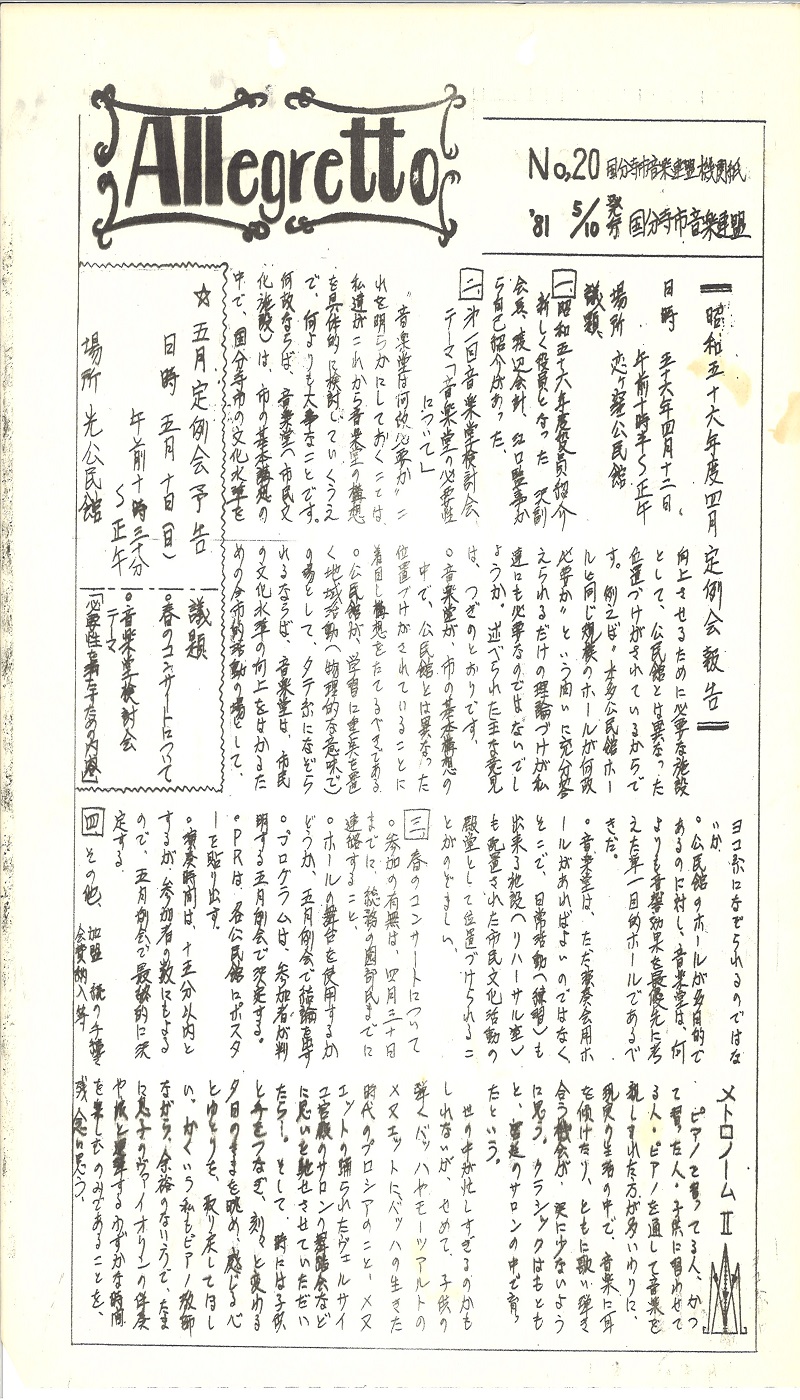 Allegretto
No.20 国分寺市音楽連盟機関紙
'81 5/10 発行 国分寺市音楽連盟
昭和五十六年度四月定例会報告
日時 五十六年四月十二日、
午前十時半〜正午
場所 恋ヶ窪公民館
議題、
一、昭和五十六年度役員紹介
新しく役員となった 沢副
会長、渡辺会計、江口監事か
ら自己紹介があった。
二、第一回音楽堂検討会、
テーマ「音楽堂の必要性
について」
“音楽堂は何故必要か”こ
れを明らかにしておくことは、
私達がこれから音楽堂の構想
を具体的に検討していくうえ
で、何よりも大事なことです。
何故ならば、音楽堂(市民文
化施設)は、市の基本構想の
中で、国分寺市の文化水準を
向上させるために必要な施設
として、公民館とは異なった
位置づけがされているからで
す。例えば“本多公民館ホー
ルと同じ規模のホールが何故
必要か”という問いに充分答
えられるだけの理論づけが私
達にも必要なのではないでし
ょうか。述べられた主な意見
は、つぎのとおりです。
○音楽堂が、市の基本構想の
中で、公民館とは異なった
位置づけがされていることに
着目し構想をたてるべきである
○公民館が、学習に重点を置
く地域活動(物理的な意味で)
の場として、タテ糸になぞら
れるならば、音楽堂は、市民
の文化水準の向上をはかるた
めの全市的活動の場として、
ヨコ糸になぞられるのではな
いか。
○公民館のホールが多目的で
あるのに対し、音楽堂は、何
よりも音響効果を最優先に考
えた単一目的ホールであるべ
きだ。
○音楽堂は、ただ演奏会用ホ
ールがあればよいのではなく、
そこで、日常活動(練習)も
出来る施設(リハーサル室)
も配置された市民文化活動の
殿堂として位置づけられるこ
とがのぞましい。
三、春のコンサートについて
○参加の有無は、四月三十日
までに、総務の園部氏までに
連絡すること、
○ホールの舞台を使用するか
どうか、五月例会で結論を出す
○プログラムは、参加者が判
明する五月例会で決定する。
○PRは、各公民館にポスタ
ーを貼り出す。
○演奏時間は、十五分以内と
するが、参加者の数にもよる
ので、五月例会で最終的に決
定する。
四、その他、加盟 続の手続
会費納入等
☆ 五月定例会予告
日時 五月十日(日)
午前十時三十分
〜正午
場所 光公民館
議題
○春のコンサートについて
○音楽堂検討会
テーマ
「必要性を果たすための内容」
メトロノームⅡ
ピアノを習ってる人、かつ
て習った人・子供に習わせて
る人・ピアノを通して音楽を
親しまれた方が多いわりに、
現実の生活の中で、音楽に耳
を傾けたり、ともに歌い弾き
合う機会が、実に少ないよう
に思う。クラシックはもとも
と、宮廷のサロンの中で育っ
たという。
世の中が忙しすぎるのかも
しれないが、せめて、子供の
弾くバッハやモーツアルトの
メヌエットに、バッハの生きた
時代のプロシアのこと、メヌ
エットの踊られたヴェルサイ
ユ宮殿のサロンの舞踏会など
に思いを馳せさせていただい
たら!。そして、時には子供
と手をつなぎ、刻々と変わる
夕日のさまを眺め、感じる心
とゆとりを、取り戻してほし
い。かくいう私もピアノ教師
ながら、余裕のないうで、たま
に息子のヴァイオリンの伴奏
や娘と連弾するわずかな時間
を楽しむのみであることを、
残念に思う。